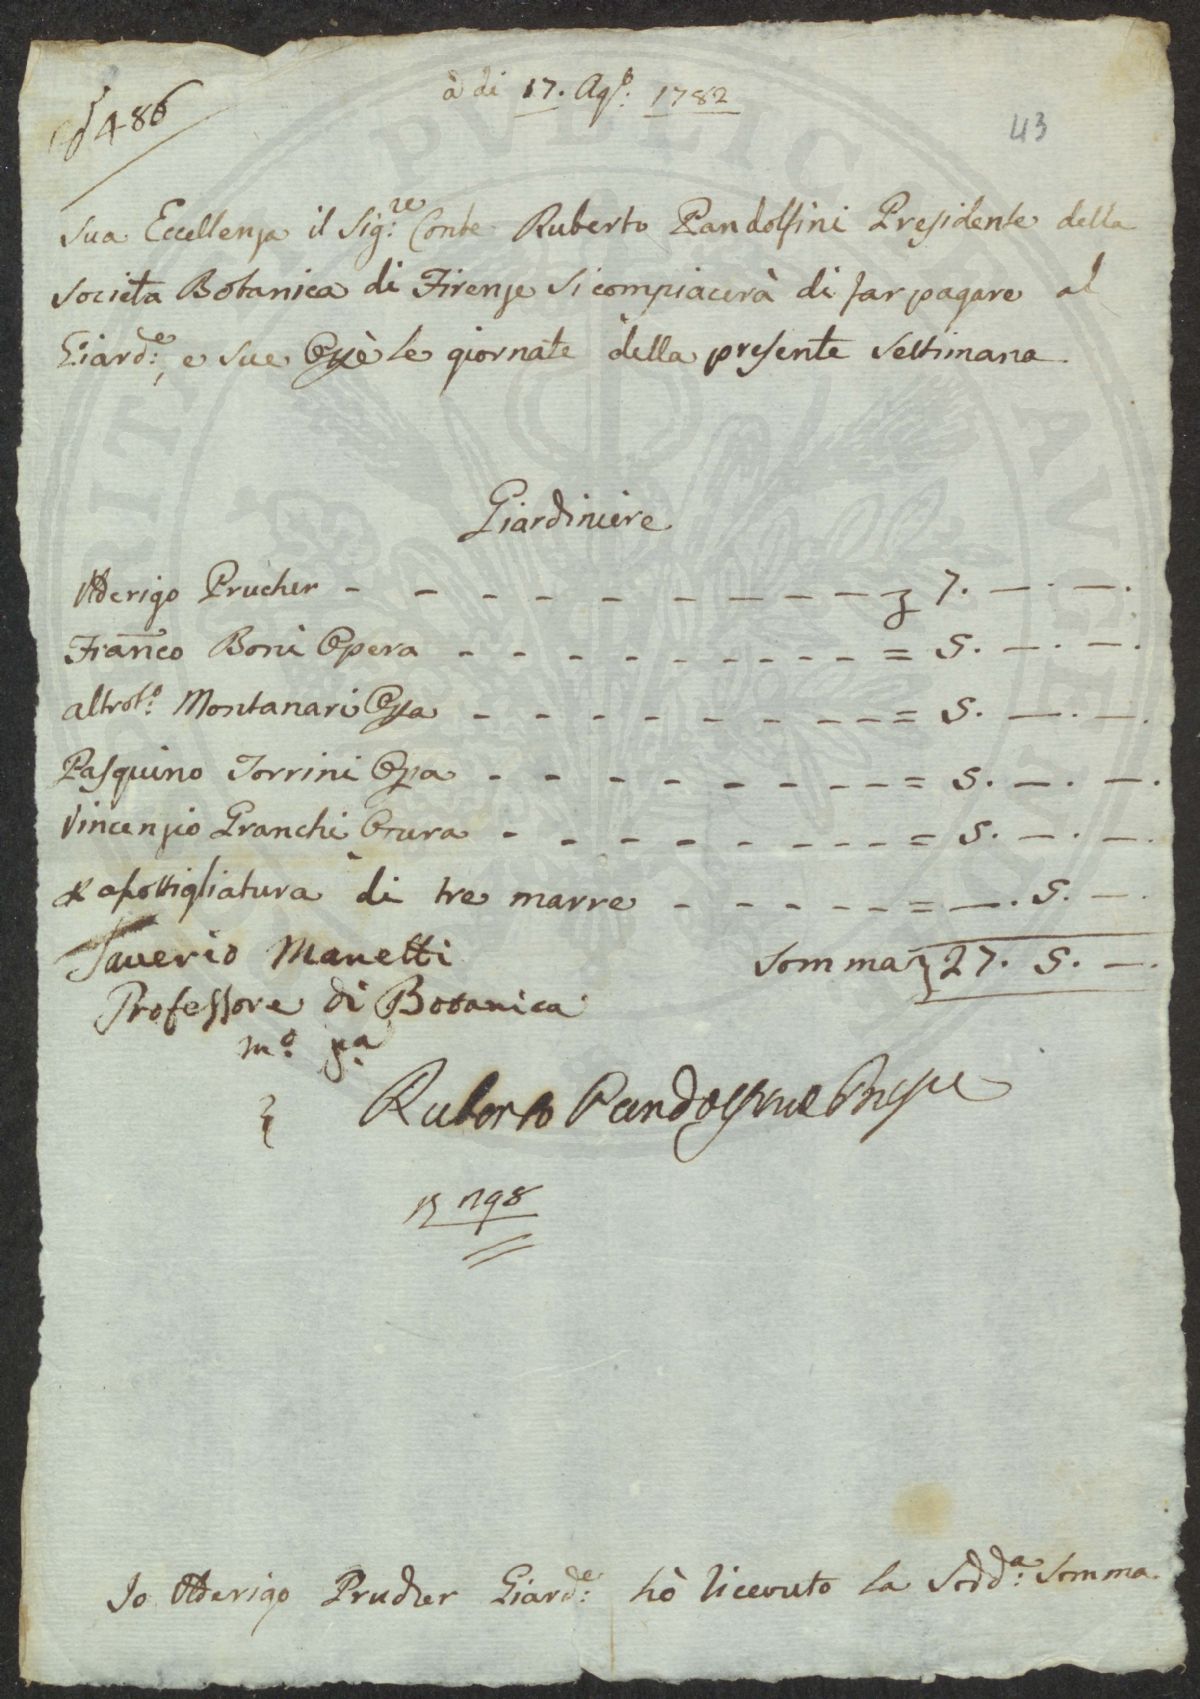 à di 17. Ag.º 1782
486
43
Sua Eccellenza il Sig.re Conte Ruberto Pandolfini Presidente della
Società Botanica di Firenze si compiacerà di far pagare al
Giard.e, e sue Opè le giornate della presente Settimana
Giardiniere
Uderigo Prucher - - - - - - - - - 7. —. —.
Franco Boni Opera - - - - - - - - = 5. —. —.
altro Montanari Opa - - - - - - - = 5. —. —.
Pasquino Torrini Opa - - - - - - - = 5. —. —.
Vincenzio Granchi Opera - - - - - - = 5. —. —.
apottigliatura di tre marre - - - - - = —. 5. —.
Saverio Manetti
Somma 27. 5. —.
Professore di Botanica
m.º p.a
Ruberto Pandolfini Presse
1798
Io Uderigo Prucher Giard.e hò ricevuto la Sodd.a Somma